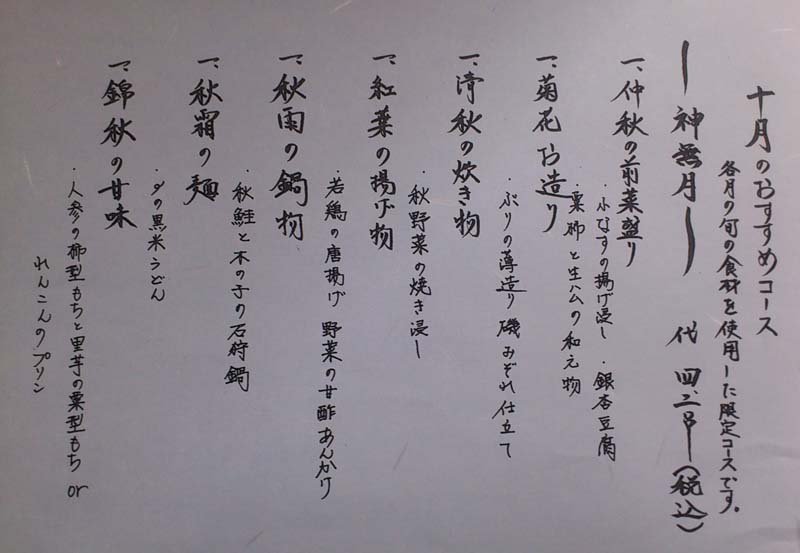 十月のおすすめコース
各月の旬の食材を使用した限定コースです。
ー神無月ー 代 四、二〇〇ー(税込)
一、仲秋の前菜盛り
・小なすの揚げ浸し ・銀杏豆腐
・栗柿と生ハムの和え物
一、菊花お造り
・ぶりの薄造り 磯みぞれ仕立て
一、清秋の炊き物
・秋野菜の焼き浸し
一、紅葉の揚げ物
・若鶏の唐揚げ 野菜の甘酢あんかけ
一、秋雨の鍋物
・秋鮭と木の子の石狩鍋
一、秋霜の麺
・夕の黒米うどん
一、錦秋の甘味
・人参の柿型もちと里芋の栗型もち or
れんこんのプリン